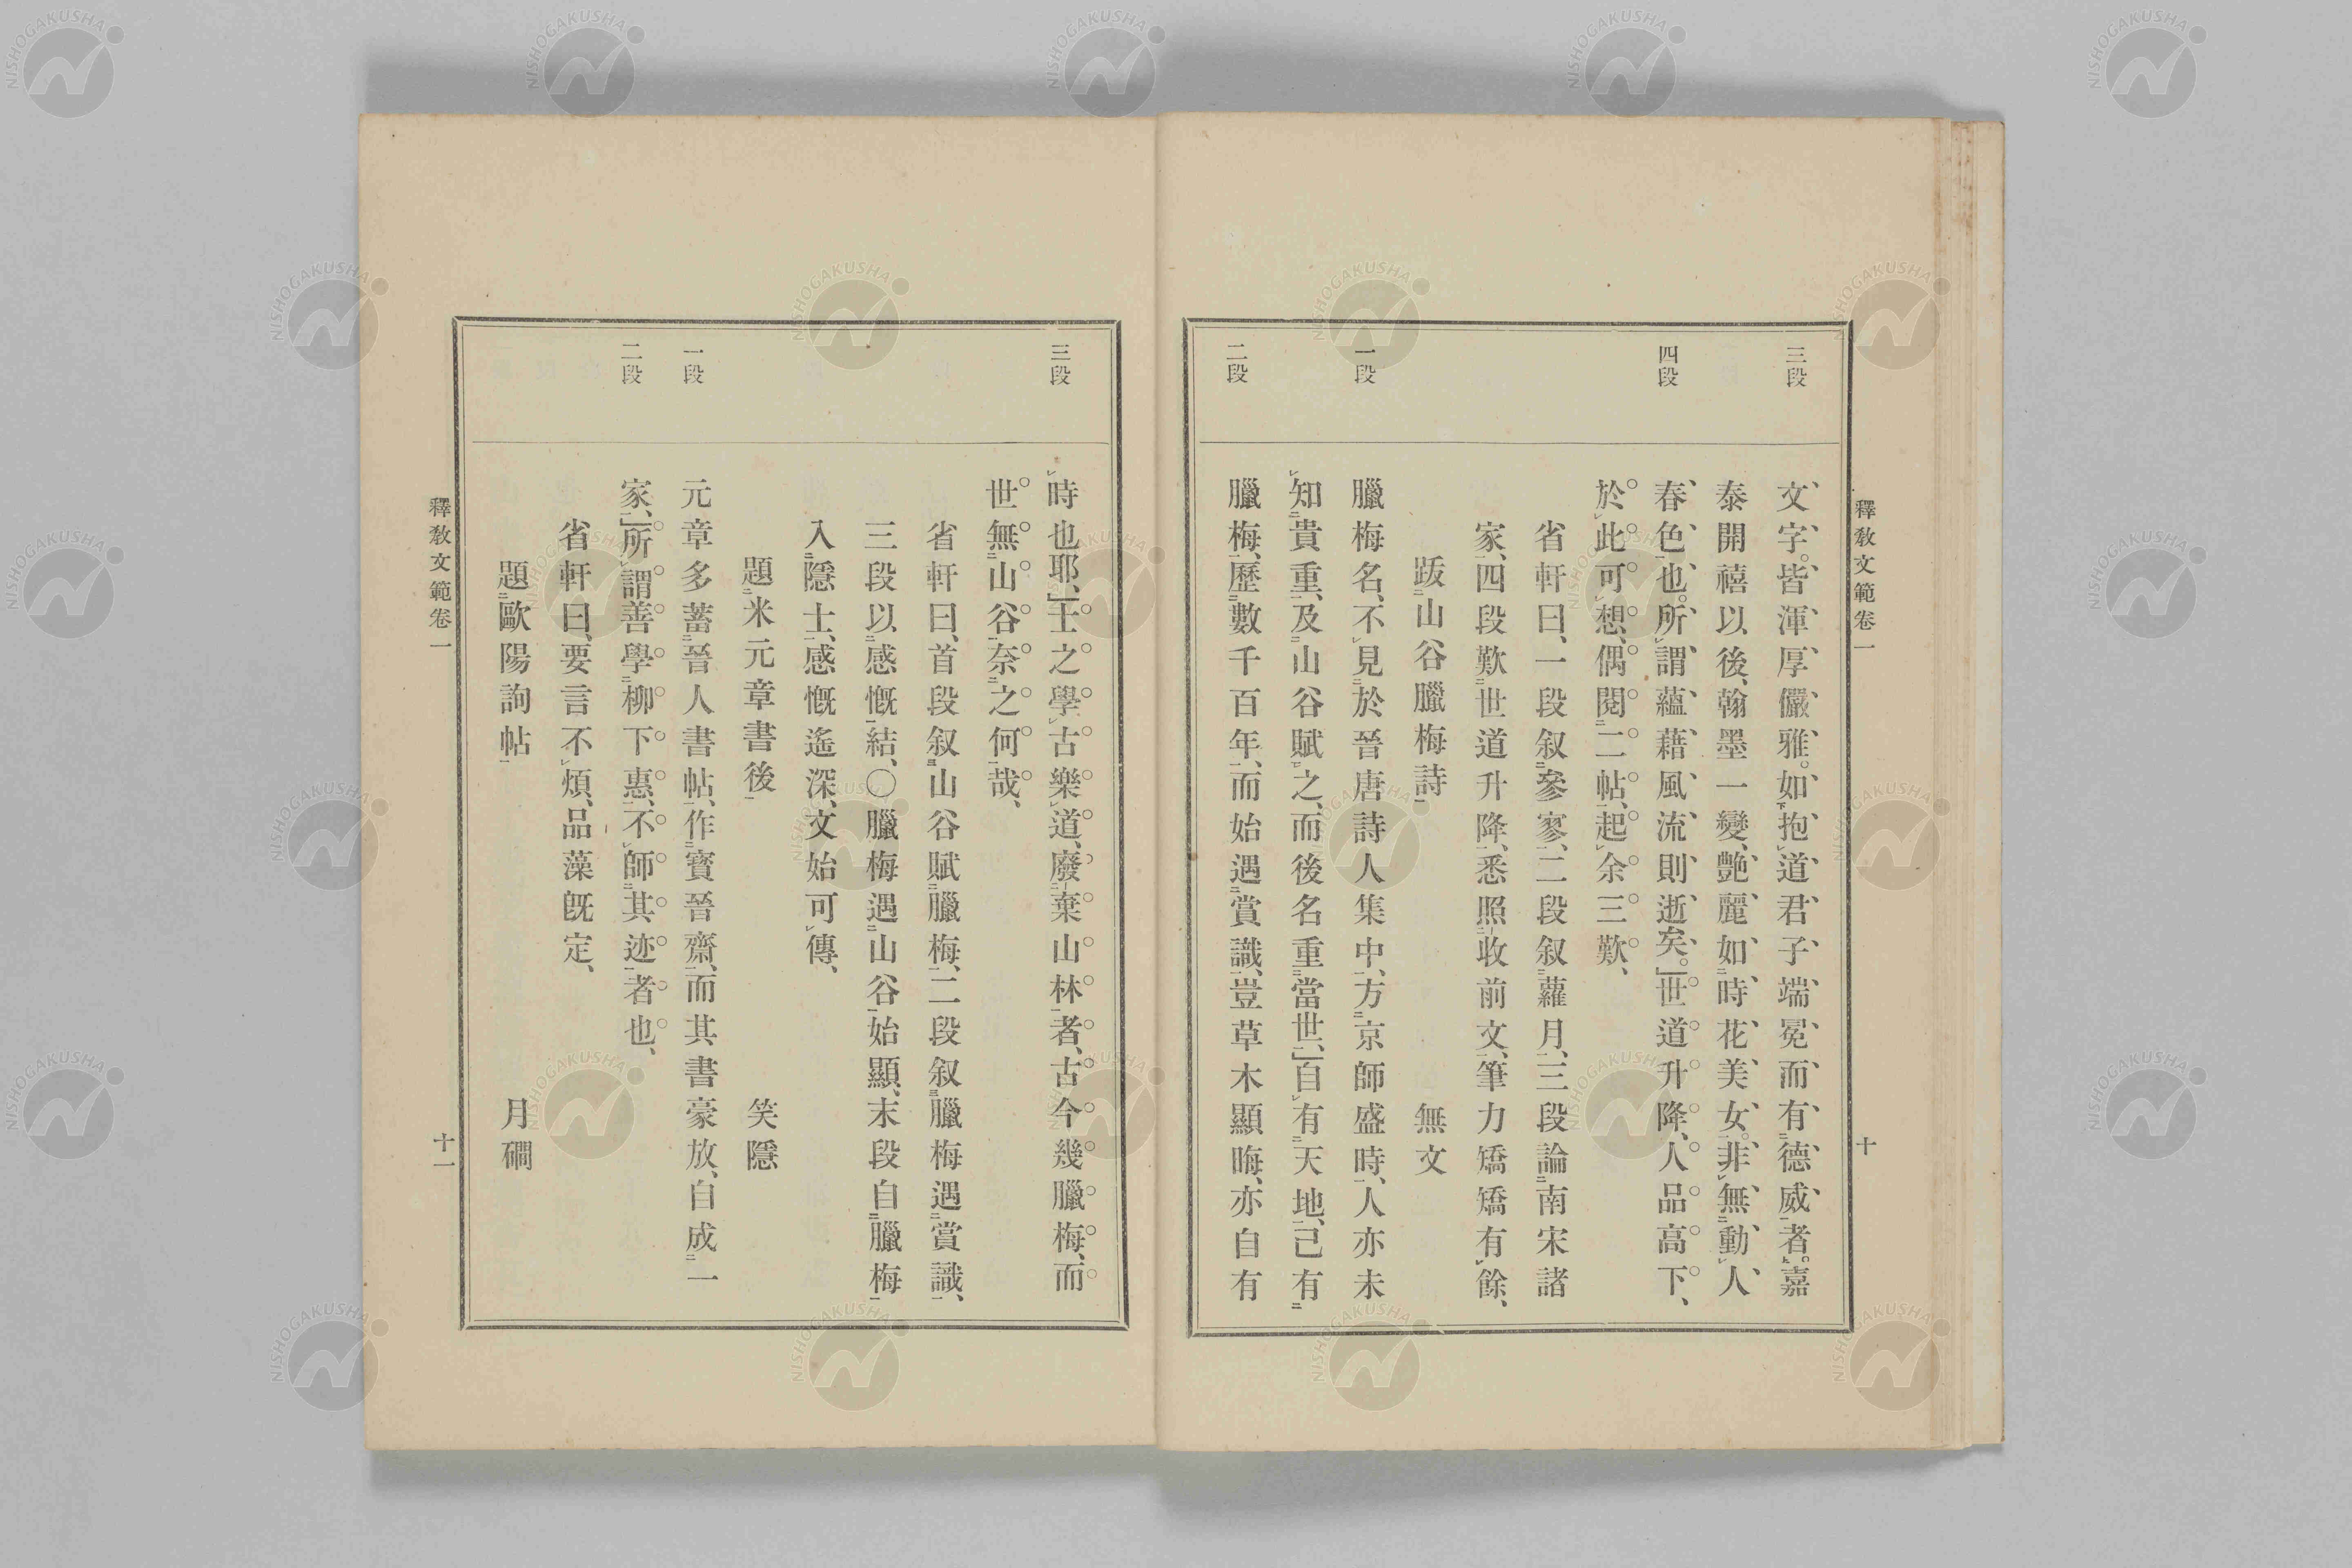 釋教文範卷一
十
三段
四段
一段
二段
文字。皆渾厚儼雅。如抱道君子端冕而有德威者。嘉
泰開禧以後、翰墨一變、艶麗如時花美女。非無動人
春色也。所謂蘊藉風流則逝矣。」世道升降、人品高下、
於此可想、偶閱二帖、起余三歎、
省軒曰、一段叙參寥、二段叙蘿月、三段論南宋諸
家、四段歎世道升降、悉照收前文、筆力矯矯有餘、
跋山谷臘梅詩
無文
臘梅名、不見於晉唐詩人集中、方京師盛時、人亦未
知貴重、及山谷賦之、而後名重當世、」自有天地、已有
臘梅、歷數千百年、而始遇賞識、豈草木顯晦、亦自有
三段
一段
二段
時也耶、」士之學古樂道、廢棄山林者、古今幾臘梅、而
世無山谷、奈之何哉、
省軒曰、首段叙山谷賦臘梅、二段叙臘梅遇賞識、
三段以感慨結、〇臘梅遇山谷始顯、末段自臘梅
入隱士、感慨遙深、文始可傳、
題米元章書後
笑隱
元章多蓄晉人書帖、作寶晉齋、而其書豪放、自成一
家、」所謂善學柳下惠、不師其迹者也、
省軒曰、要言不煩、品藻既定、
題歐陽詢帖
月磵
釋教文範卷一
十一
NISHOGAKUSHA